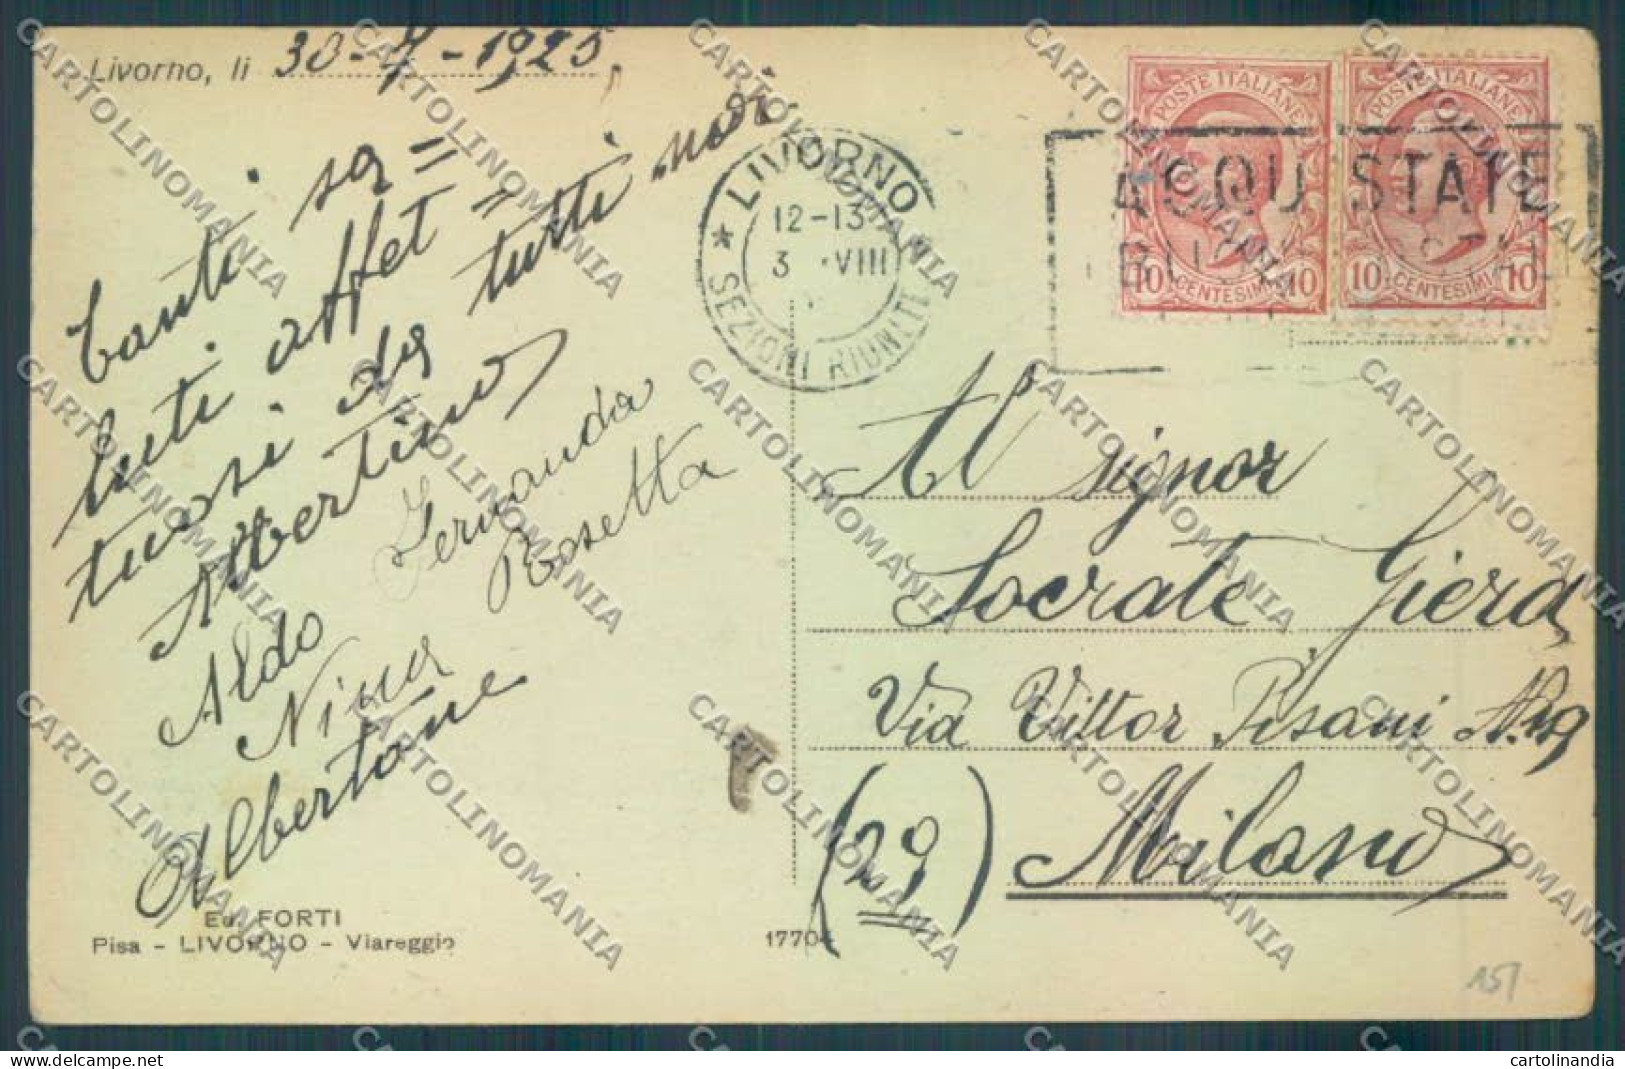 Livorno, li 30-7-1925,
Tanti sa=
luti affet=
tuosi da tutti noi
Albertino
Fernanda
Rosetta
Aldo
Nina
Albertone
Ed. FORTI
Pisa - LIVORNO - Viareggio
17704
LIVORNO
12-13
3 VIII
SEZIONI RIUNITE
POSTE ITALIANE
10 CENTESIMI 10
POSTE ITALIANE
10 CENTESIMI 10
ACQU STATE
Al signor
Socrate Gierd
Via Vittor Pisani N. 19
(29) Milano
15/
CARTOLINOMANIA
cartolinandia